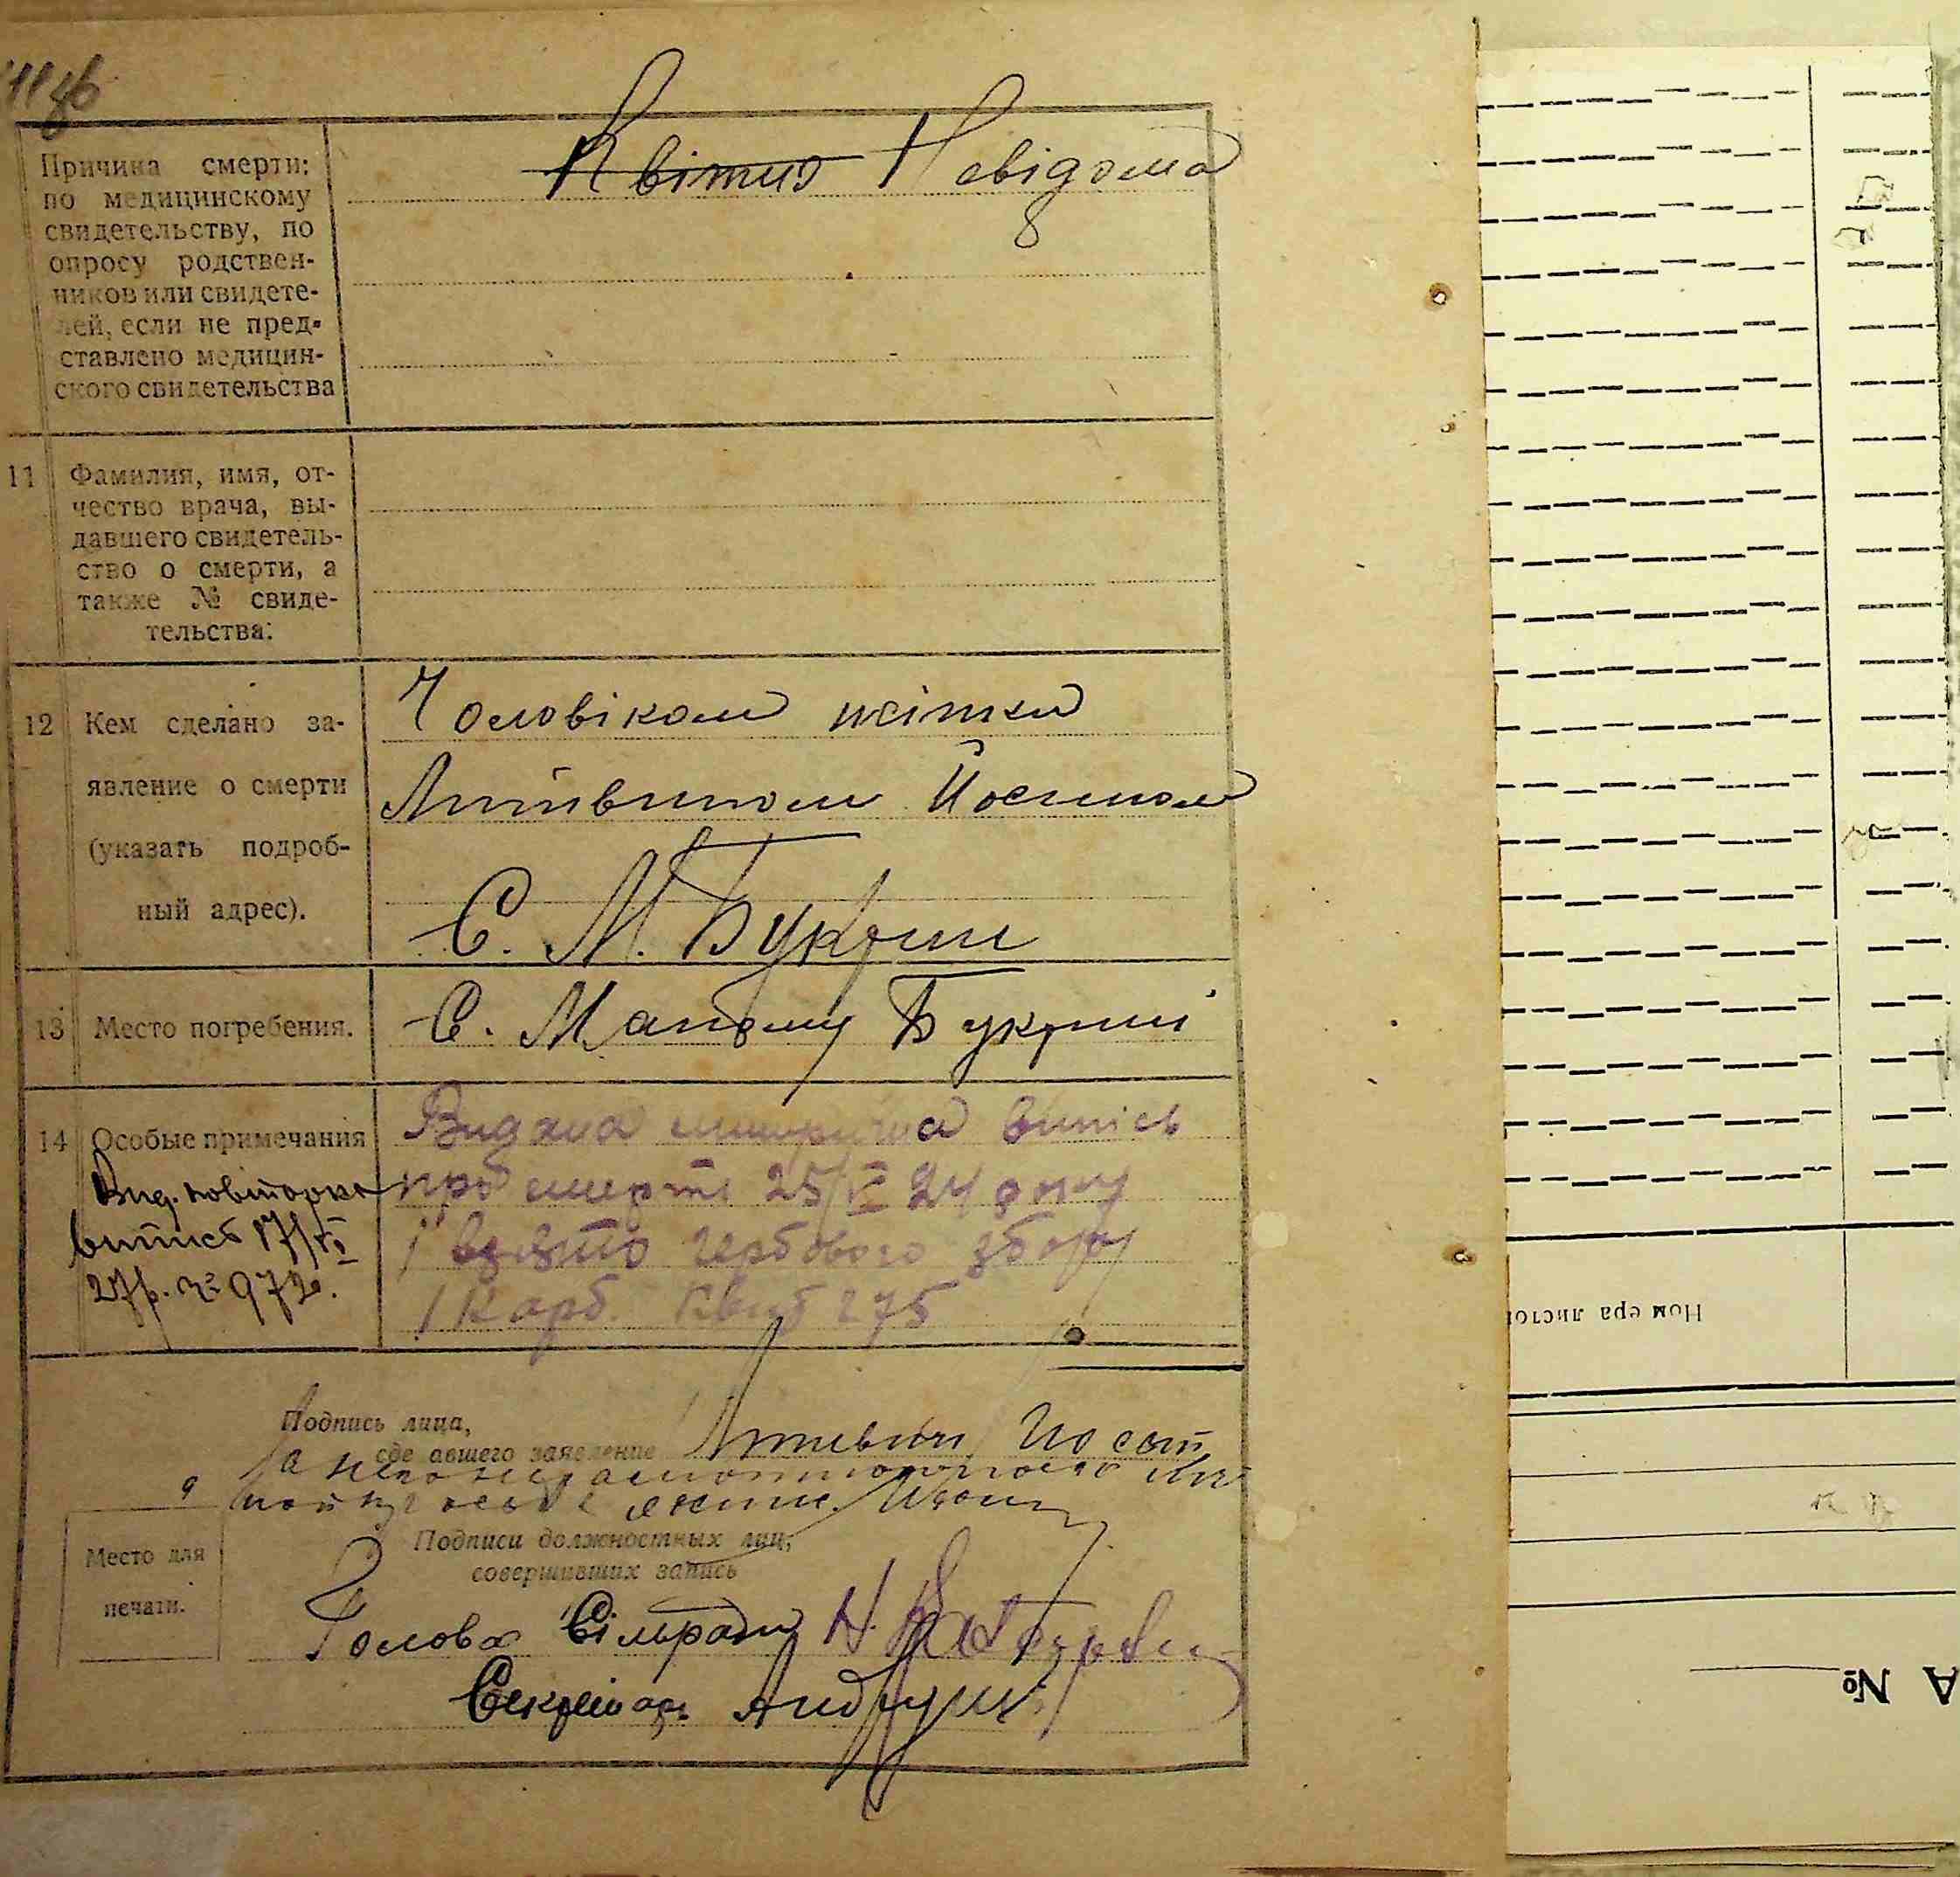 Причина смерти:
по медицинскому
свидетельству, по
опросу родствен-
ников или свидете-
лей, если не пред-
ставлено медицин-
ского свидетельства
Квітня Невідома
11 Фамилия, имя, от-
чество врача, вы-
давшего свидетель-
ство о смерти, а
также № свиде-
тельства:
12 Кем сделано за-
явление о смерти
(указать подроб-
ный адрес).
Чоловіком тітки
Литвином Йосипом
С. М. Букрин
13 Место погребения.
С. Малому Букрині
14 Особые примечания
Видана випісь
про смерть 25/VI 24 року
і взято гербового збору
1 Карб. Квит 275
Вид. повторно
витпсь 17/VI
27р. № 972.
Подпись лица,
сделавшего заявление Литвин Йосип
а
Подписи должностных лиц,
совершивших запись
Место для
печати.
Голова Сільради Н.
Секретар
Номера листов
А №